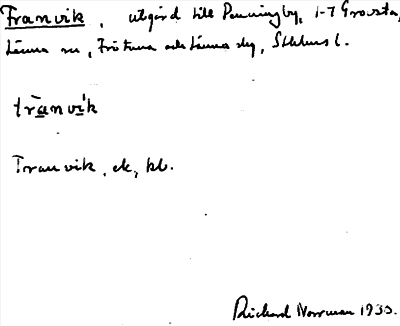 Tranvik, utgård till Penningby, 1-7 Grovsta,
Länna sn, Frötuna och Länna skg, Sthlms l.
trànvi̇k
Tranvik, ek, kb.
Richard Norrman 1933.